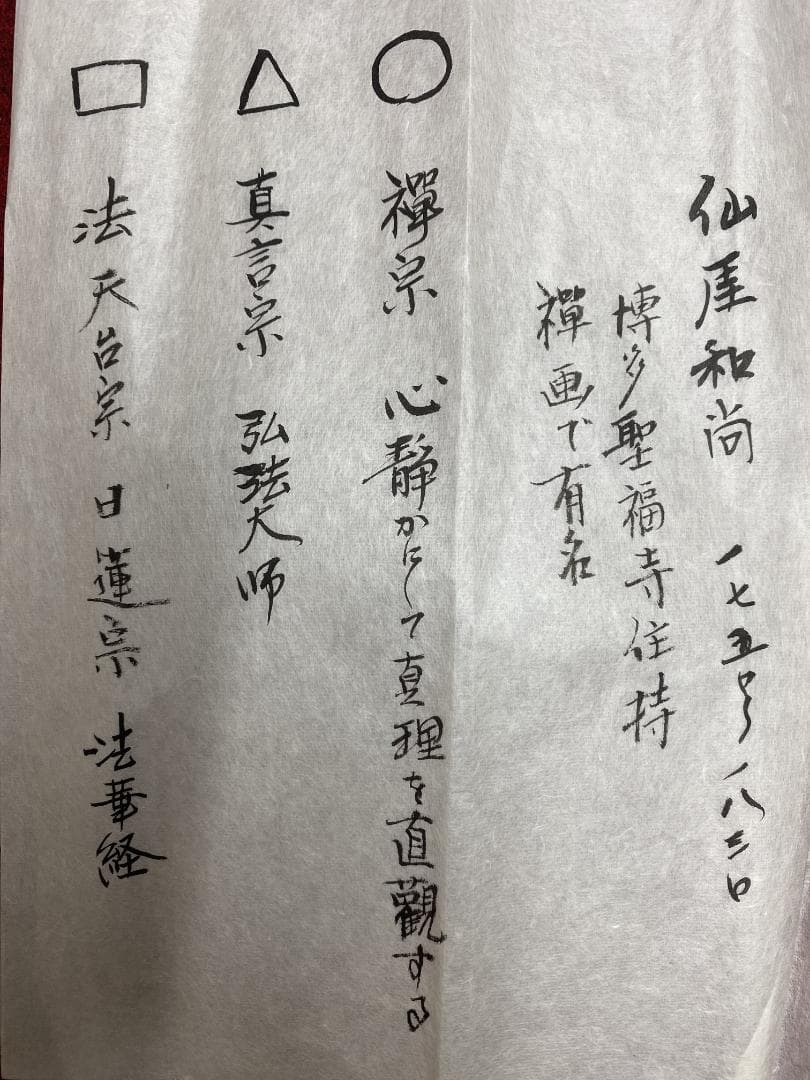 仙厓和尚 一七五〇〜一八三〇
博多聖福寺住持
禅画で有名
○ 禅宗 心静かにして真理を直観する
△ 真言宗 弘法大师
□ 法 天台宗 日蓮宗 法華経